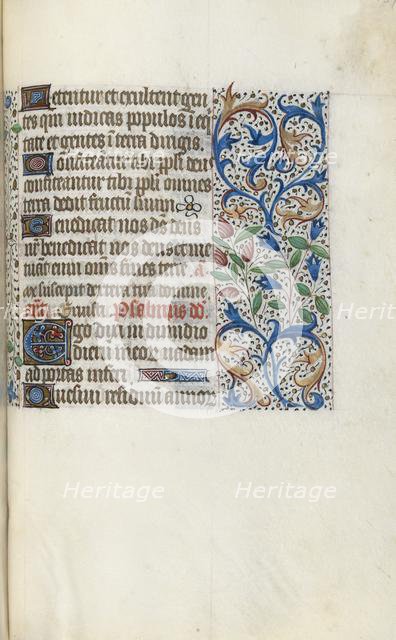 Letentur et exultent gen
tes qm iudicas populos i eq
tate et gentes i terra dirigis.
Confiteantur tibi ppli deus
confiteantur tibi ppli omnes
terra dedit fructu suum
Benedicat nos ds deus
nr benedicat nos deus et me
tuat eum oms fines terre a
ex suscepit dextera tua domine
Psalmus do.
Ego dixi in dimidio
dierū meorū vadam
ad portas inferi
Quesivi residuū annor
Heritage Heritage Heritage
Heritage Heritage